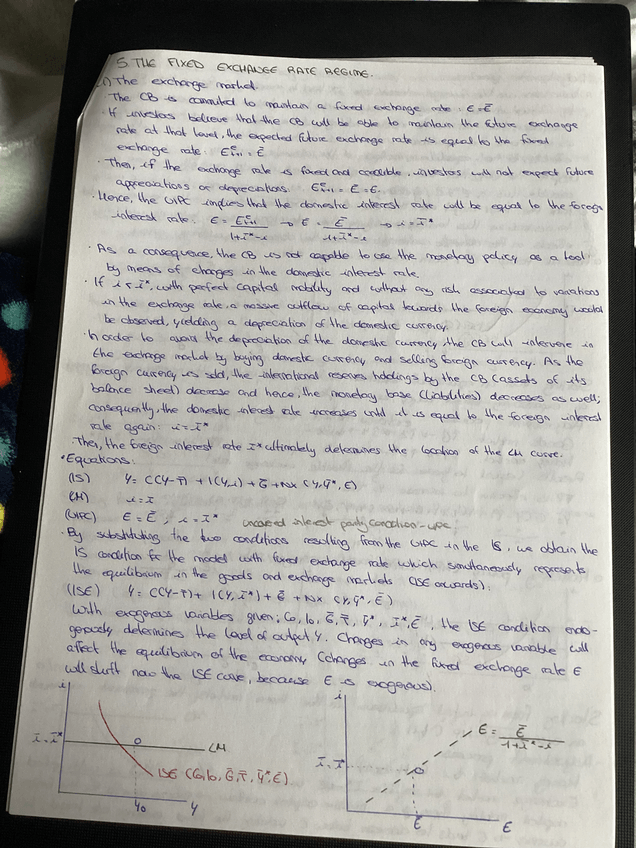 5. THE FIXED EXCHANGE RATE REGIME.
1) The exchange market.
The CB is commited to maintain a fixed exchange rate: E=Ē
· If investors believe that the CB will be able to maintain the future exchange
rate at that level, the expected future exchange rate is equal to the fixed
exchange rate: Eᵉt+1 = Ē
· Then, if the exchange rate is fixed and credible, investors will not expect future
appreciations or depreciations. Eᵉt+1 = Ē = E.
· Hence, the UIPC implies that the domestic interest rate will be equal to the foreign
interest rate: E = Eᵉt+1 / 1+i*-i → E = Ē / 1+i*-i → i = i*
· As a consequence, the CB is not capable to use the monetary policy as a tool
by means of changes in the domestic interest rate.
· If i < i*, with perfect capital mobility and without any risk associated to variations
in the exchange rate, a massive outflow of capital towards the foreign economy would
be observed, yielding a depreciation of the domestic currency.
· In order to avoid the depreciation of the domestic currency, the CB will intervene in
the exchange market by buying domestic currency and selling foreign currency. As the
foreign currency is sold, the international reserves holdings by the CB (assets of its
balance sheet) decrease and hence, the monetary base (liabilities) decreases as well;
consequently, the domestic interest rate increases until it is equal to the foreign interest
rate again: i = i*
· Then, the foreign interest rate i* ultimately determines the location of the LM curve.
· Equations:
(IS) Y = C(Y-T̄) + I(Y,i) + Ḡ + NX (Y, Y*, E)
(LM) i = ī
(UIPC) E = Ē ; i = ī* uncovered interest parity condition - UPC.
· By substituting the two conditions resulting from the UIPC in the IS, we obtain the
IS condition for the model with fixed exchange rate which simultaneously represents
the equilibrium in the goods and exchange markets (ISE onwards).
(ISE) Y = C(Y-T̄) + I(Y, ī*) + Ḡ + NX (Y, Ȳ*, Ē)
With exogenous variables given; C0, I0, Ḡ, T̄, Ȳ*, ī*, Ē, the ISE condition endo-
genously determines the level of output Y. Changes in any exogenous variable will
affect the equilibrium of the economy (changes in the fixed exchange rate E
will shift now the ISE curve, because E is exogenous).
i
ī = ī*
0
LM
ISE (C0, I0, Ḡ, T̄, Ȳ*, Ē)
Y0
Y
i
ī = ī*
0
E = Ē / 1+i*-i
Ē
E